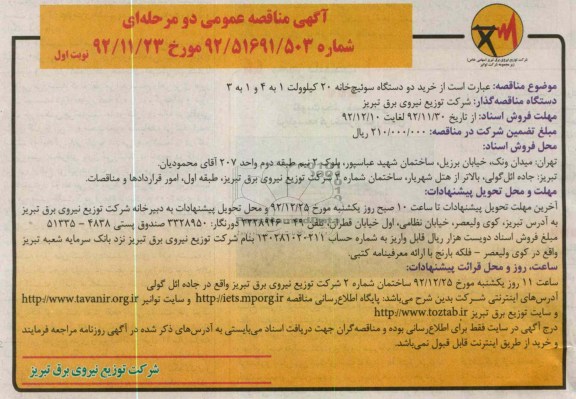 آگهی مناقصه عمومی دو مرحله‌ای
شماره ۹۲/۵۱۶۹۱/۵۰۳ مورخ ۹۲/۱۱/۲۳ نوبت اول
موضوع مناقصه: عبارت است از خرید دو دستگاه سوئیچ‌خانه ۲۰ کیلوولت ۱ به ۴ و ۱ به ۳
دستگاه مناقصه‌گذار: شرکت توزیع نیروی برق تبریز
مهلت فروش اسناد: از تاریخ ۹۲/۱۱/۳۰ لغایت ۹۲/۱۲/۱۰
مبلغ تضمین شرکت در مناقصه: ۲۱۰/۰۰۰/۰۰۰ ریال
محل فروش اسناد:
تهران: میدان ونک، خیابان برزیل، ساختمان شهید عباسپور، بلوک ۲ نیم طبقه دوم واحد ۲۰۷ آقای محمودیان.
تبریز: جاده ائل‌گولی، بالاتر از هتل شهریار، ساختمان شماره ۲ شرکت توزیع نیروی برق تبریز، طبقه اول، امور قراردادها و مناقصات.
مهلت و محل تحویل پیشنهادات:
آخرین مهلت تحویل پیشنهادات تا ساعت ۱۰ صبح روز یکشنبه مورخ ۹۲/۱۲/۲۵ و محل تحویل پیشنهادات به دبیرخانه شرکت توزیع نیروی برق تبریز
به آدرس تبریز، کوی ولیعصر، خیابان نظامی، اول خیابان قطران، تلفن ۴۹-۳۳۲۸۹۴۶ دورنگار: ۳۳۲۸۹۵۰ صندوق پستی ۴۸۳۸ - ۵۱۳۳۵
مبلغ فروش اسناد دویست هزار ریال قابل واریز به شماره حساب ۱۳۰۲۸۱۰۲۰۲۱۱ بنام شرکت توزیع نیروی برق تبریز نزد بانک سرمایه شعبه تبریز
واقع در کوی ولیعصر - فلکه بارنج با ارائه معرفینامه کتبی.
ساعت، روز و محل قرائت پیشنهادات:
ساعت ۱۱ روز یکشنبه مورخ ۹۲/۱۲/۲۵ ساختمان شماره ۲ شرکت توزیع نیروی برق تبریز واقع در جاده ائل گولی
آدرس‌های اینترنتی شرکت بدین شرح می‌باشد: پایگاه اطلاع‌رسانی مناقصه http://iets.mporg.ir و سایت توانیر http://www.tavanir.org.ir
و سایت توزیع تبریز http://www.toztab.ir
درج آگهی در سایت فقط برای اطلاع‌رسانی بوده و مناقصه‌گران جهت دریافت اسناد می‌بایستی به آدرس‌های ذکر شده در آگهی روزنامه مراجعه فرمایند
و خرید از طریق اینترنت قابل قبول نمی‌باشد.
شرکت توزیع نیروی برق تبریز